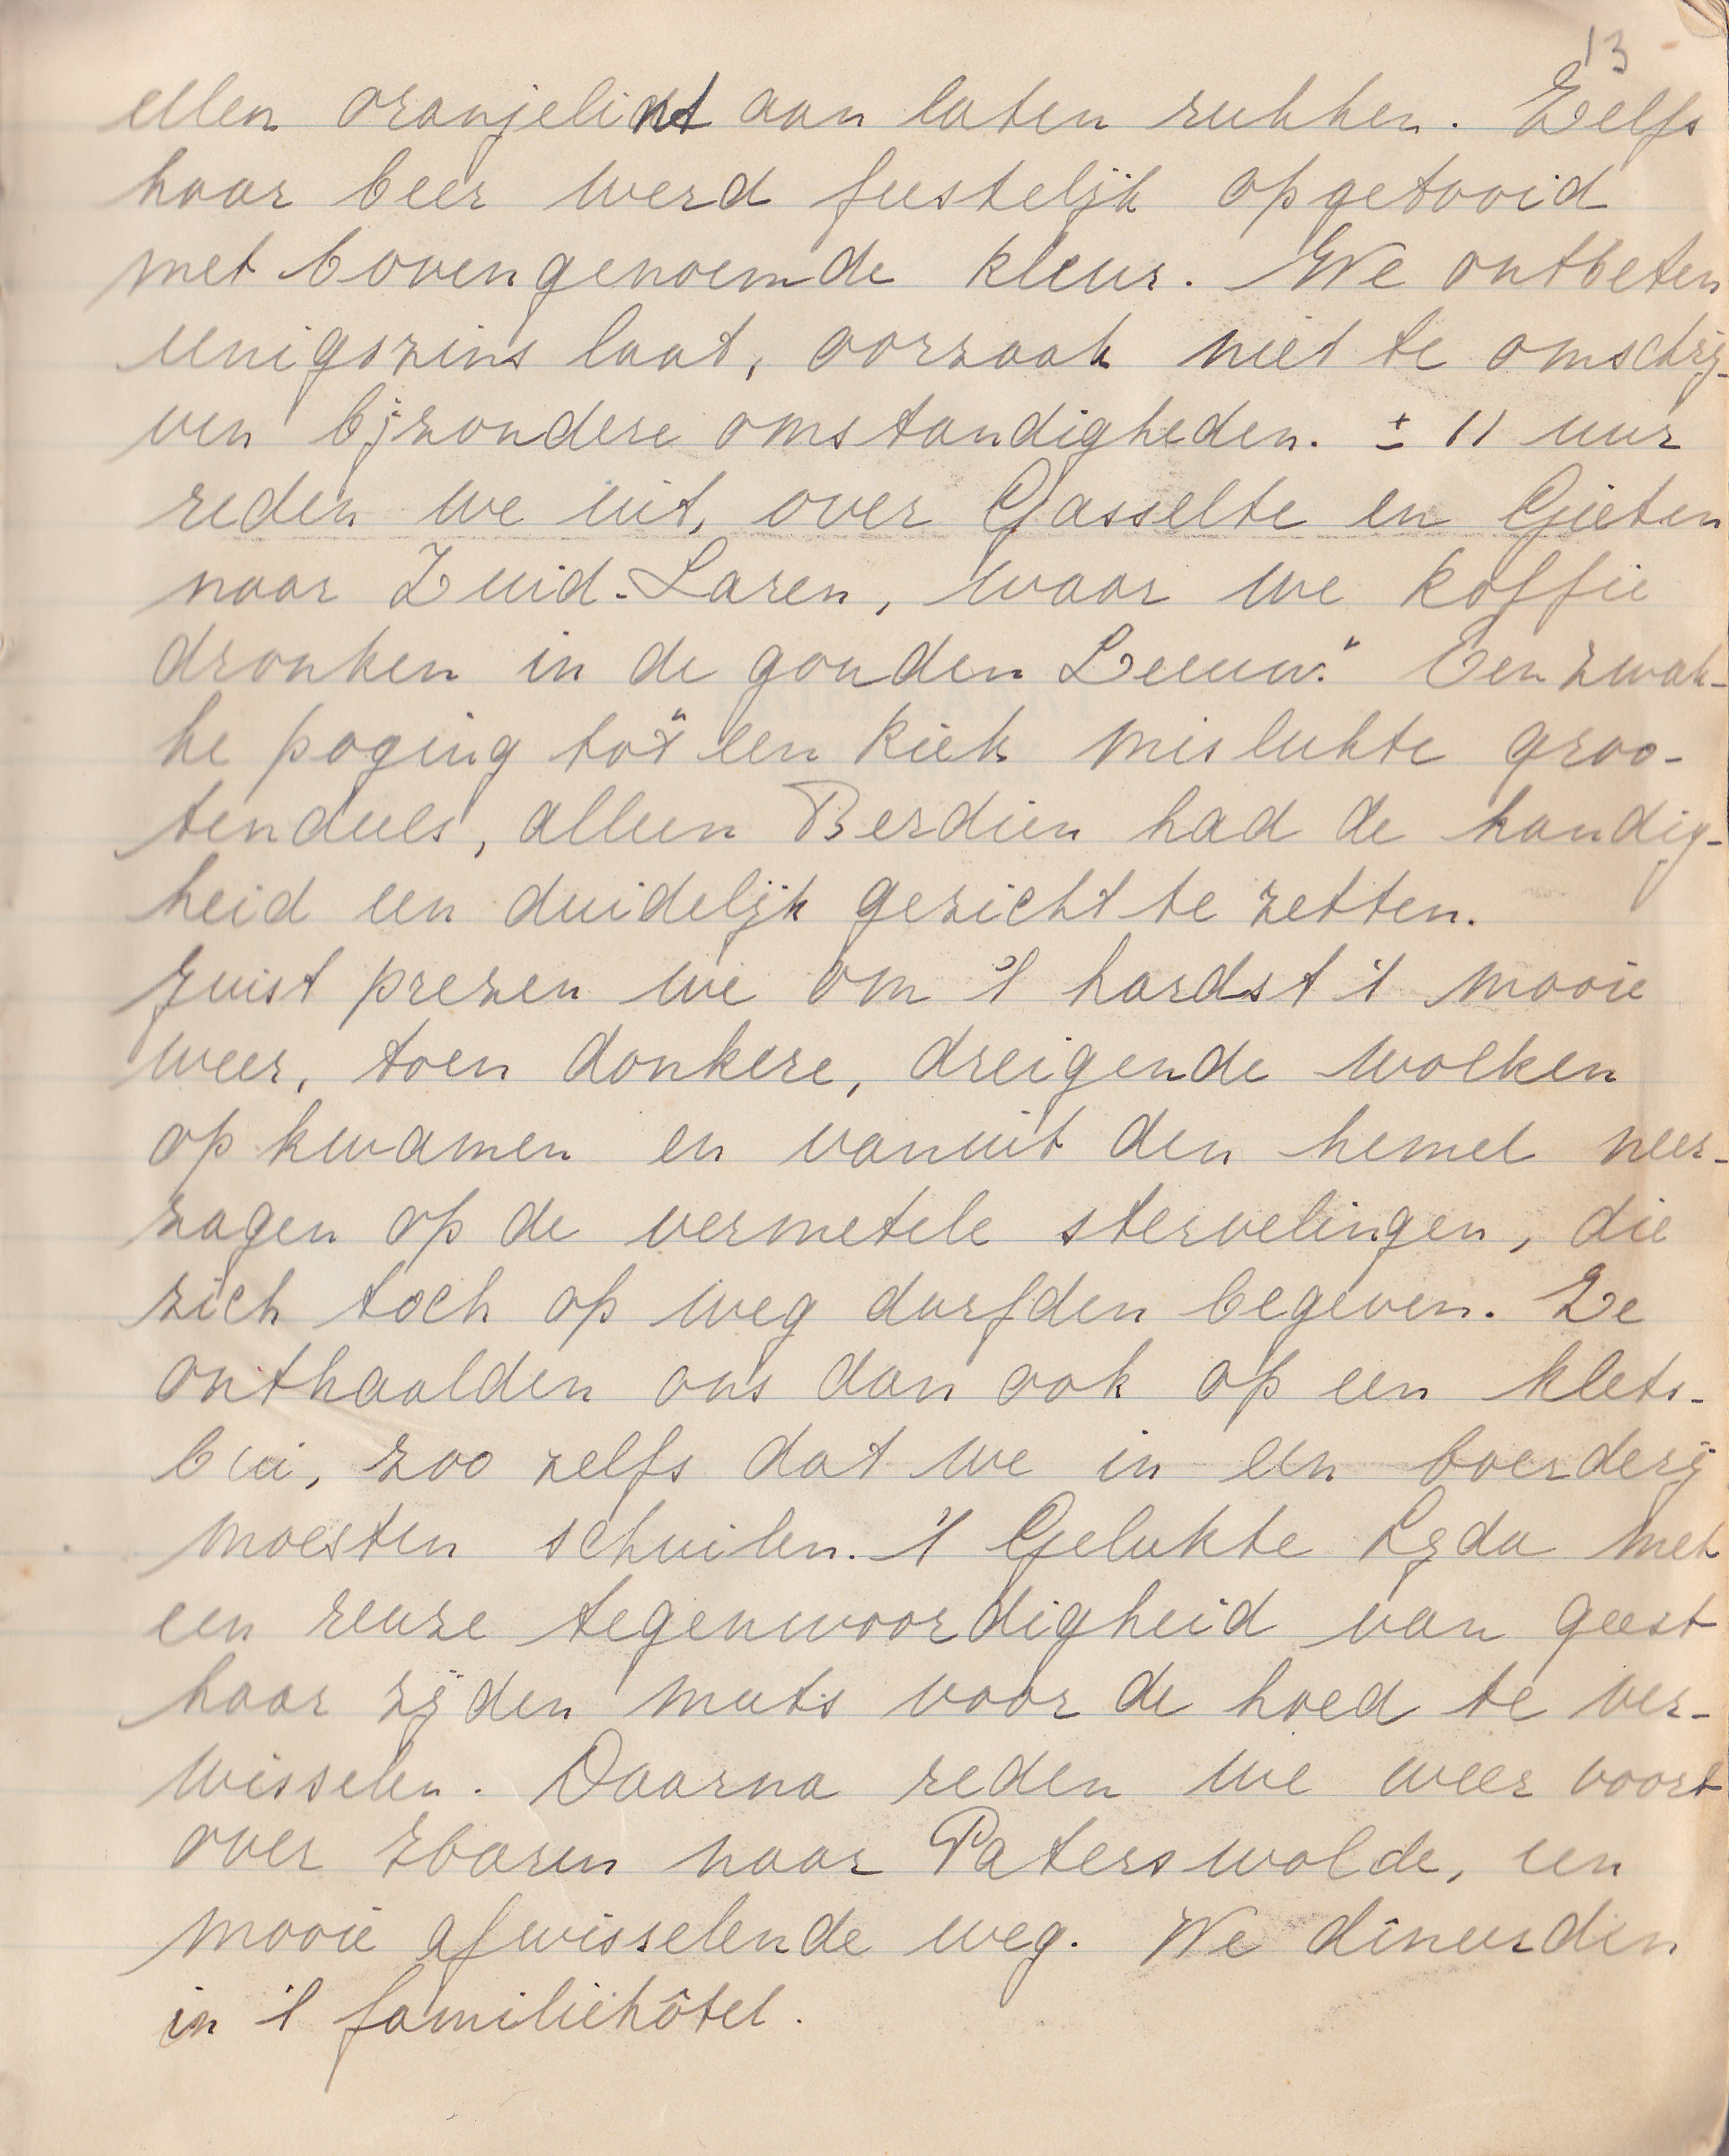 13
ellen oranjelint aan laten rukken. Zelfs
haar beer werd feestelijk opgetooid
met bovengenoemde kleur. We ontbeten
eenigszins laat, oorzaak niet te omschrij-
ven bijzondere omstandigheden. ± 11 uur
reden we uit, over Gasselte en Gieten
naar Zuid-Laren, waar we koffie
dronken in de gouden Leeuw." Een zwak-
ke poging tot "een kiek mislukte groo-
tendeels, alleen Berdien had de handig-
heid een duidelijk gezicht te zetten.
Juist prezen we om 't hardst 't mooie
weer, toen donkere, dreigende wolken
op kwamen en vanuit den hemel neer-
zagen op de vermetele stervelingen, die
zich toch op weg durfden begeven. Ze
onthaalden ons dan ook op een klets-
bui, zoo zelfs dat we in een boerderij
moesten schuilen. 't Gelukte Lyda met
een reuze tegenwoordigheid van geest
haar zijden muts voor de hoed te ver-
wisselen. Daarna reden we weer voort
over naar Paterswolde, een
mooie afwisselende weg. We dîneerden
in 't familiehôtel.